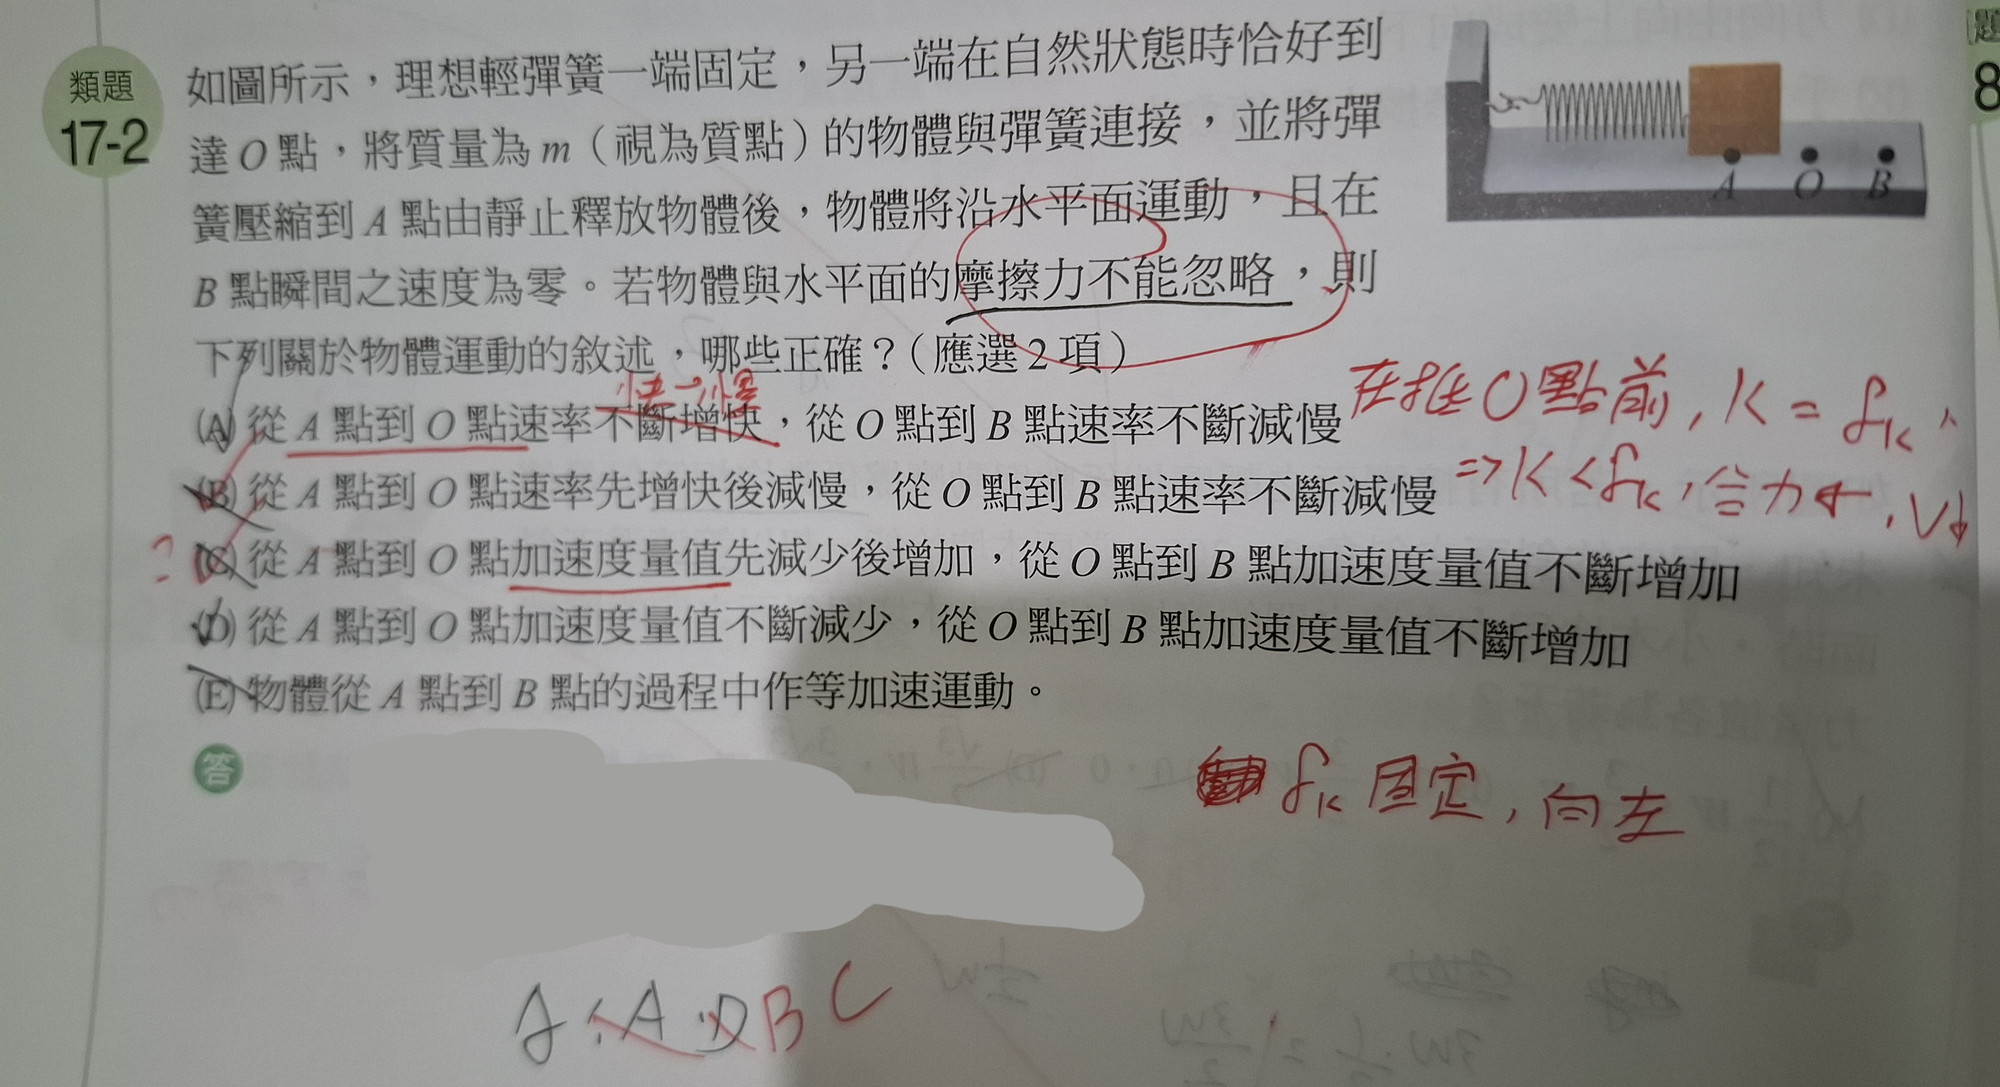 類題
17-2
如圖所示，理想輕彈簧一端固定，另一端在自然狀態時恰好到
達O點，將質量為m（視為質點）的物體與彈簧連接，並將彈
簧壓縮到A點由靜止釋放物體後，物體將沿水平面運動，且在
B點瞬間之速度為零。若物體與水平面的摩擦力不能忽略，則
下列關於物體運動的敘述，哪些正確？（應選2項）
快→慢
(A) 從A點到O點速率不斷增快，從O點到B點速率不斷減慢
(B) 從A點到O點速率先增快後減慢，從O點到B點速率不斷減慢
(C) 從A點到O點加速度量值先減少後增加，從O點到B點加速度量值不斷增加
(D) 從A點到O點加速度量值不斷減少，從O點到B點加速度量值不斷增加
(E) 物體從A點到B點的過程中作等加速運動。
?
A O B
題
8
在抵O點前, K = fK,
=> K < fK, 合力←, V↓
答
fK 固定, 向左
A D B C